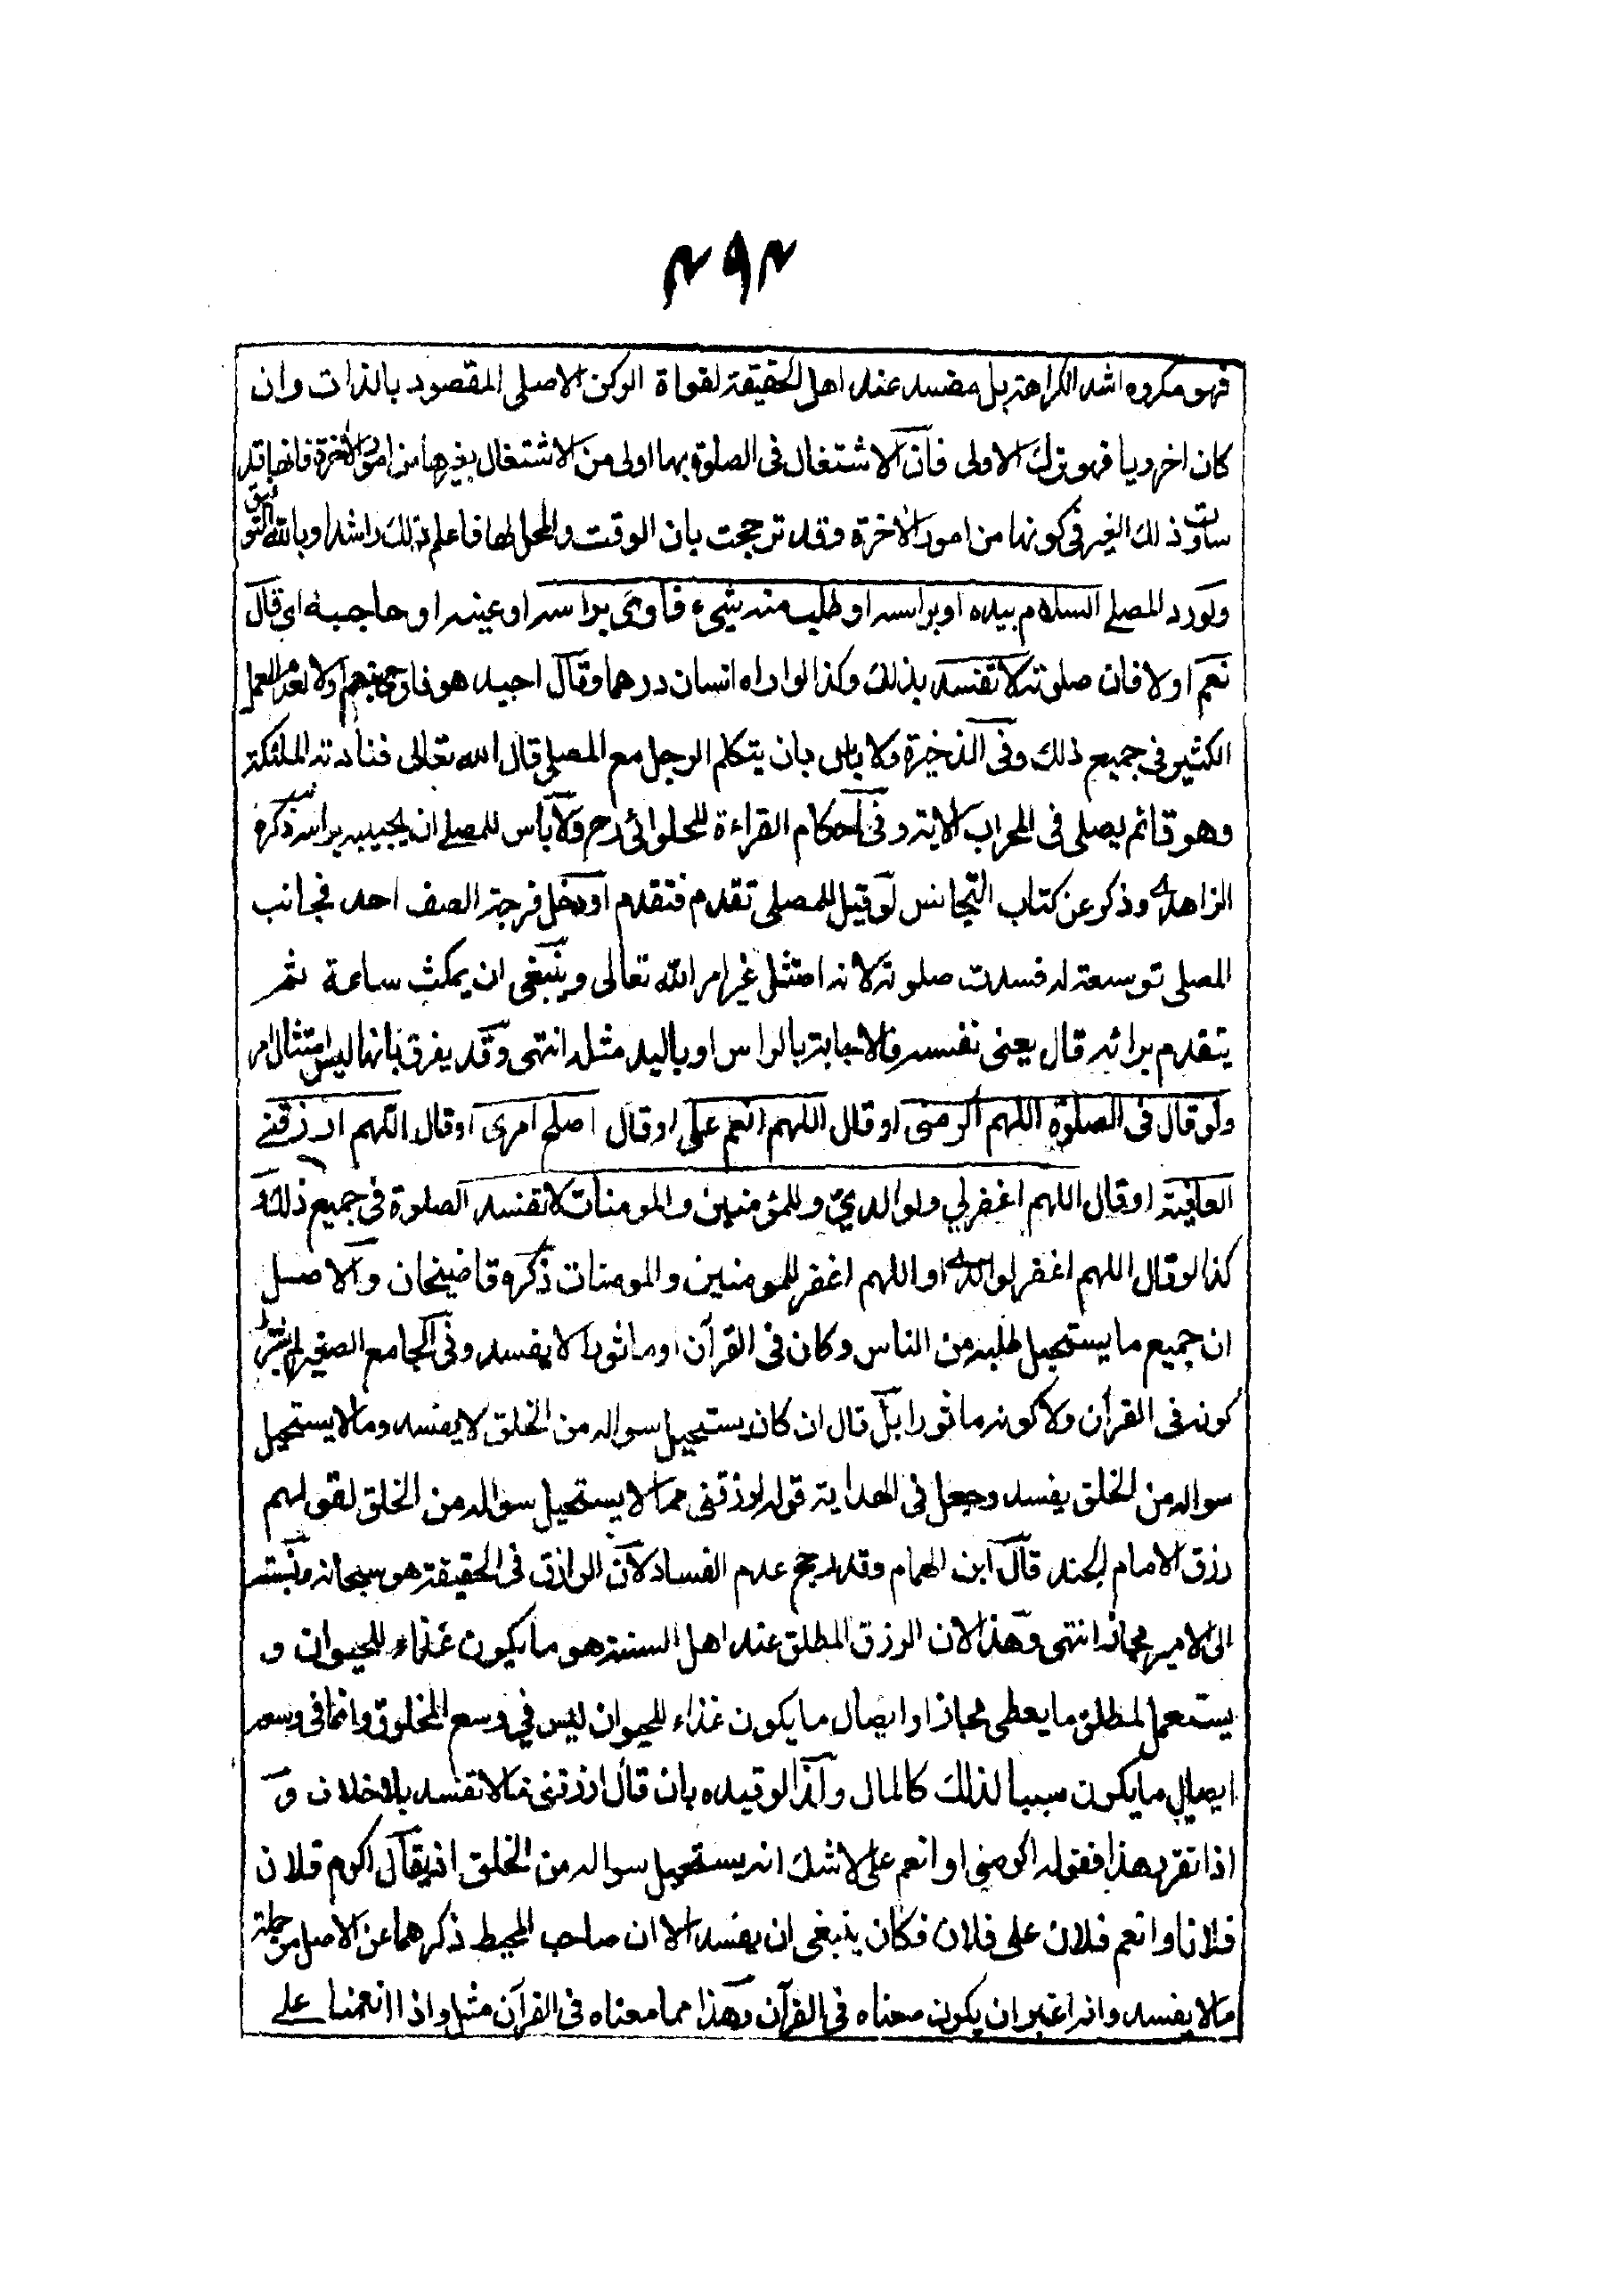 ۴۹۴
فهو مكروه اشد الكراهة بل مفسد عند اهل الحقيقة لفواة الركن الاصلى المقصود بالذات وان
كان اخرويا فهو ترك الاولى فان الاشتغال فى الصلوة بها اولى من الاشتغال بغيرها من امور الاخرة فانها قد
ساوت ذلك الغير فى كونها من امور الاخرة وقد ترجحت بان الوقت والمحل لها فاعلم ذلك راشدا وبالله التوفيق
ولو رد المصلے السلام بيده او براسه او طلب منه شيء فاومى براسه او عينه او حاجبه اى قال
نعم او لا فان صلوته لا تفسد بذلك وكذا لو اراه انسان درهما وقال اجيد هو فاومى بنعم او لا لعدم العمل
الكثير فى جميع ذلك وفى الذخيرة ولا باس بان يتكلم الرجل مع المصلى قال الله تعالى فنادته الملئكة
وهو قائم يصلى فى المحراب الاية وفى احكام القراءة للحلوائى رح ولا بأس للمصلے ان يجيبه براسه ذكره
الزاهدى وذكر عن كتاب التجانس لو قيل للمصلى تقدم فتقدم او دخل فرجة الصف احد فجانب
المصلى توسعة له فسدت صلوته لانه امتثل غير امر الله تعالى وينبغى ان يمكث ساعة ثم
يتقدم برائه قال يعنى نفسه فالاجابة بالراس او باليد مثله انتهى وقد يفرق بانها ليس امتثال امر
ولو قال فى الصلوة اللهم اكرمنى او قال اللهم انعم على او قال اصلح امرى او قال اللهم ارزقنے
العافية او قال اللهم اغفر لي ولوالديّ وللمؤمنين والمومنات لا تفسد الصلوة فى جميع ذلك و
كذا لو قال اللهم اغفر لوالدى او اللهم اغفر للمومنين والمومنات ذكره قاضيخان والاصل
ان جميع ما يستحيل طلبه من الناس وكان فى القرآن او ماثورا لا يفسد وفى الجامع الصغير لم يشترط
كونه فى القرآن ولا كونه ماثورا بل قال ان كان يستحيل سواله من الخلق لا يفسد وما لا يستحيل
سواله من الخلق يفسد وجعل فى الهداية قوله ارزقنى مما لا يستحيل سواله من الخلق لقولهم
رزق الامام الجند قال ابن الهمام وقد رجح عدم الفساد لان الرازق فى الحقيقة هو سبحانه ونسبته
الى الامير مجاز انتهى وهذا لان الرزق المطلق عند اهل السنة هو ما يكون غذاء للحيوان و
يستعمل لمطلق ما يعطى مجازا وايصال ما يكون غذاء للحيوان ليس في وسع المخلوق وانما فى وسعه
ايصال ما يكون سببا لذلك كالمال ولذا لو قيده بان قال ارزقنى مالا تفسد بلا خلاف و
اذا تقرر هذا فقوله اكرمنى او انعم على لا شك انه يستحيل سواله من الخلق اذ يقال اكرم فلان
فلانا وانعم فلان على فلان فكان ينبغى ان يفسد الا ان صاحب المحيط ذكرهما عن الاصل من جملة
مالا يفسد وانه اعتبر ان يكون معناه فى القرآن وهذا مما معناه فى القرآن مثل واذا انعمنا علے